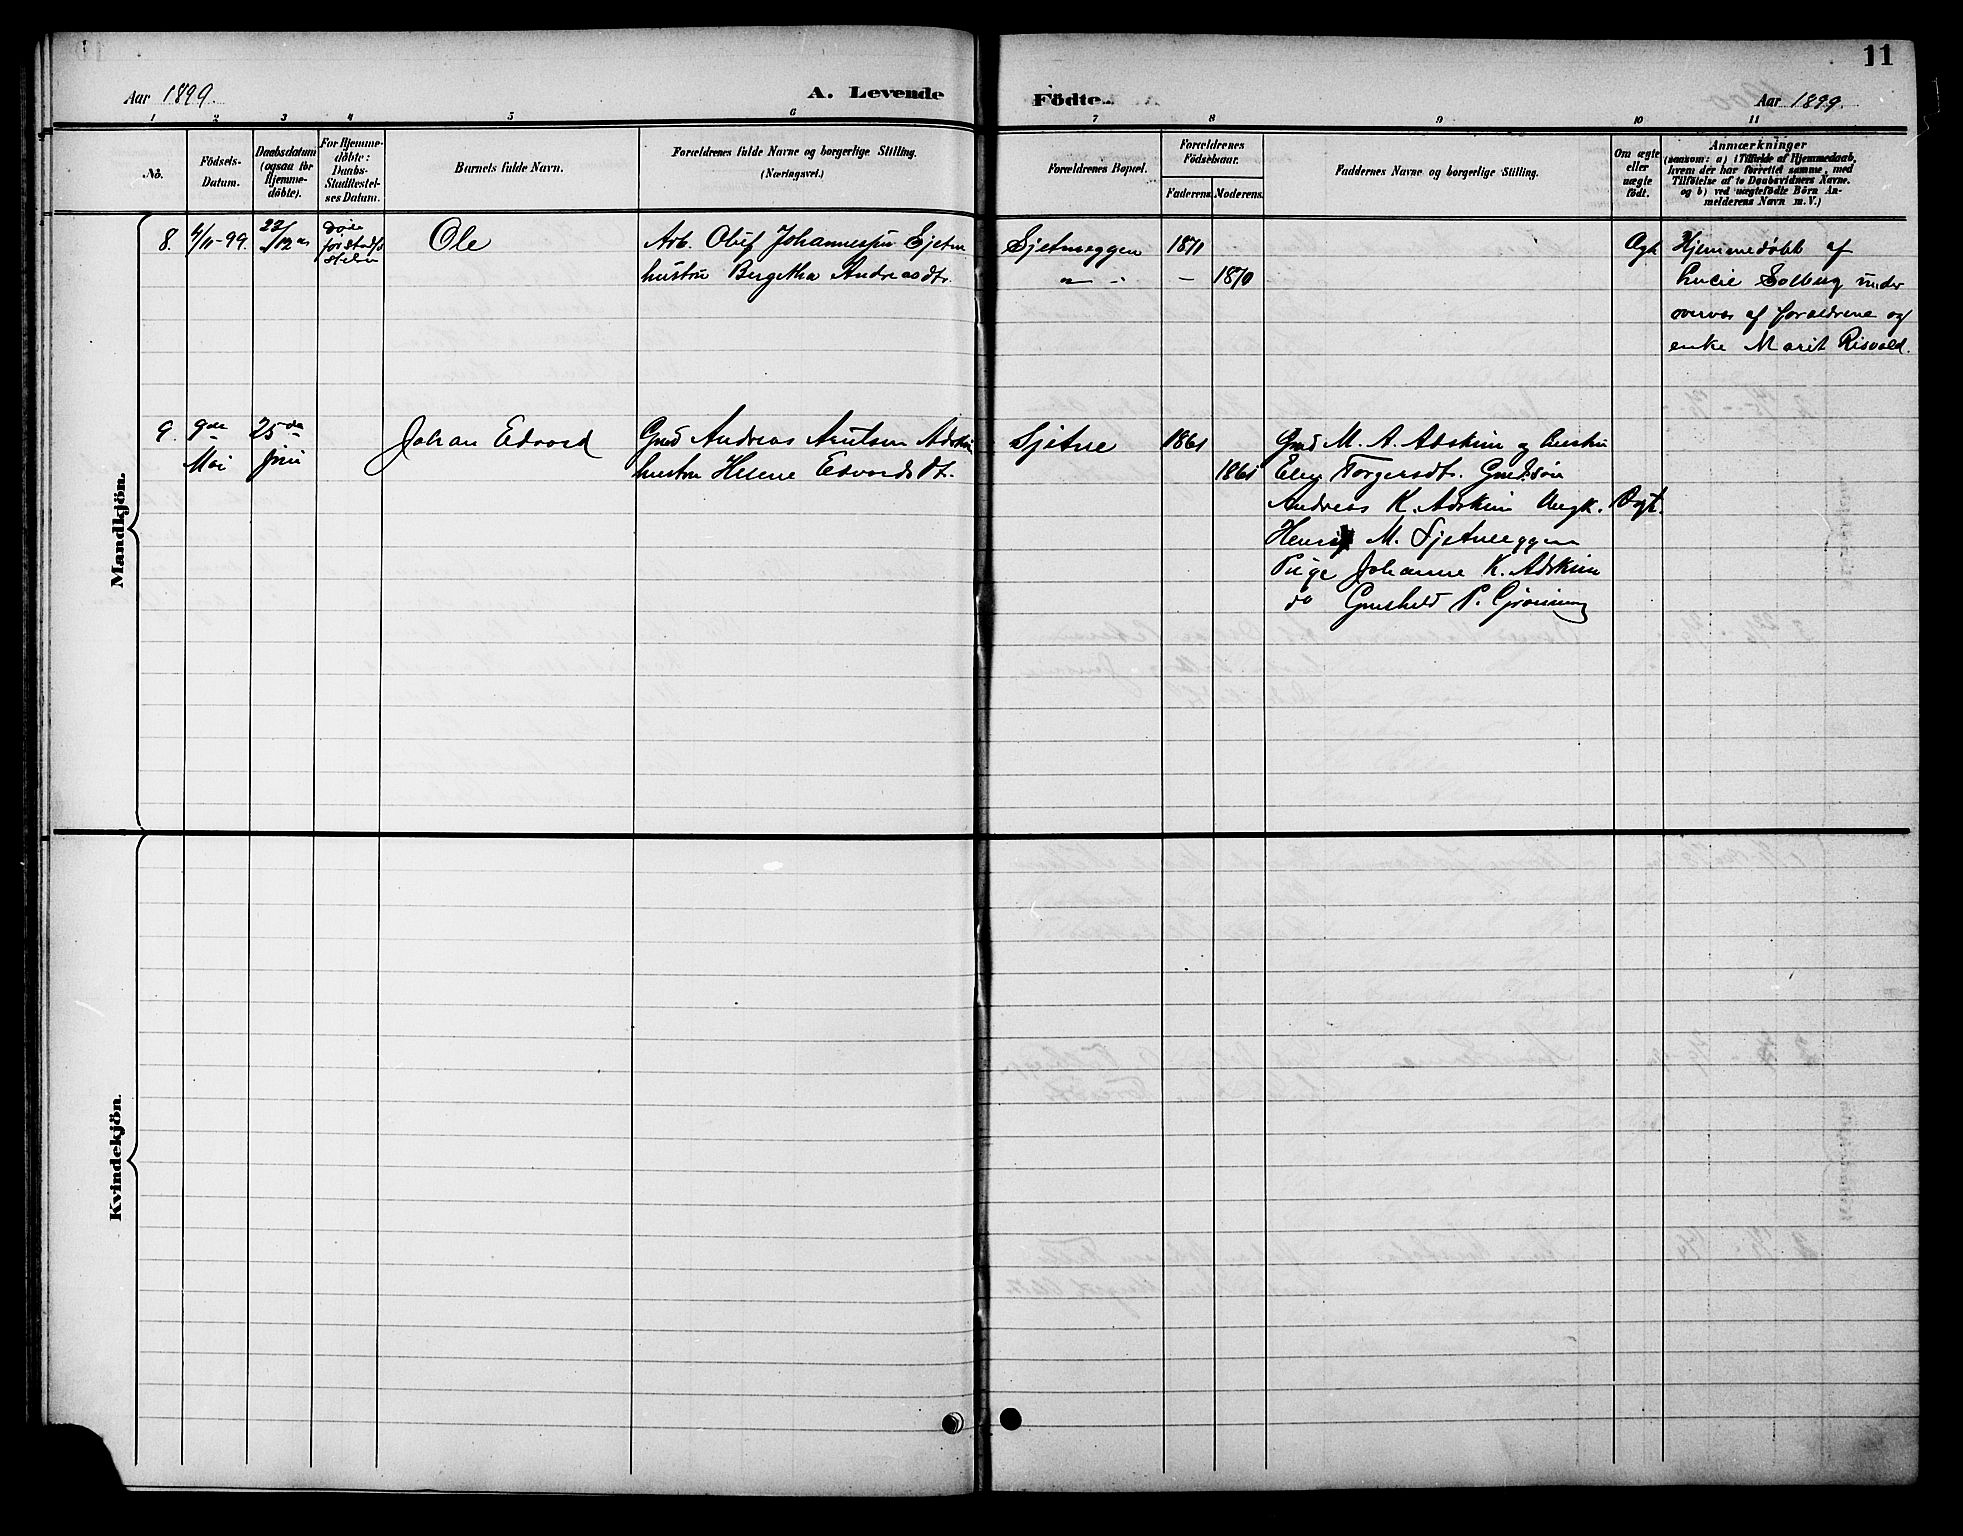 11
Aar 1899.
A. Levende
Födte.
Aar 1899.
1 2 3 4 5 6 7 8 9 10 11
No.
Födsels-
Datum.
Daabsdatum
(ogsaa för
Hjemme-
döbte).
For Hjemme-
döbte:
Daabs-
Stadfæstel-
ses Datum.
Barnets fulde Navn.
Forældrenes fulde Navne og borgerlige Stilling.
(Næringsvei.)
Forældrenes Bopæl.
Forældrenes
Födselsaar.
Faderens. Moderens.
Faddernes Navne og borgerlige Stilling.
Om ægte
eller
uægte
födt.
Anmærkninger
(saasom: a) i Tilfælde af Hjemmedaab,
hvem der har forrettet samme, med
Tilföielse af to Daabsvidners Navne.
og b) ved uægtefödte Börn An-
melderens Navn m. V.)
Mandkjön.
8. 4/11-99. 22/12
döde
før stadf
stelsen
Ole
Arb. Oluf Johannessen Sjetn
hustru Bergetha Andreasdtr.
Sjetneeggen
1871
1870
Ægt
Hjemmedøbt af
Lucie Solberg under
overvær af foraldrene og
enke Marit Risvold.
9. 9de
Mai
25de
juni
Johan Edvard
Gmd Andreas Arntsen
hustru Helene Edvardsdt.
Sjetne
1861
1861
Gmd M. A. Adskim og hustru
Elen Torgersdt. Gmds.søn
Andreas K. Adskim Ungk.
Henrik M. Sjetneeggen
Pige Johanne K. Adskim
do Gunhild P.
Ægt.
Kvindekjön.